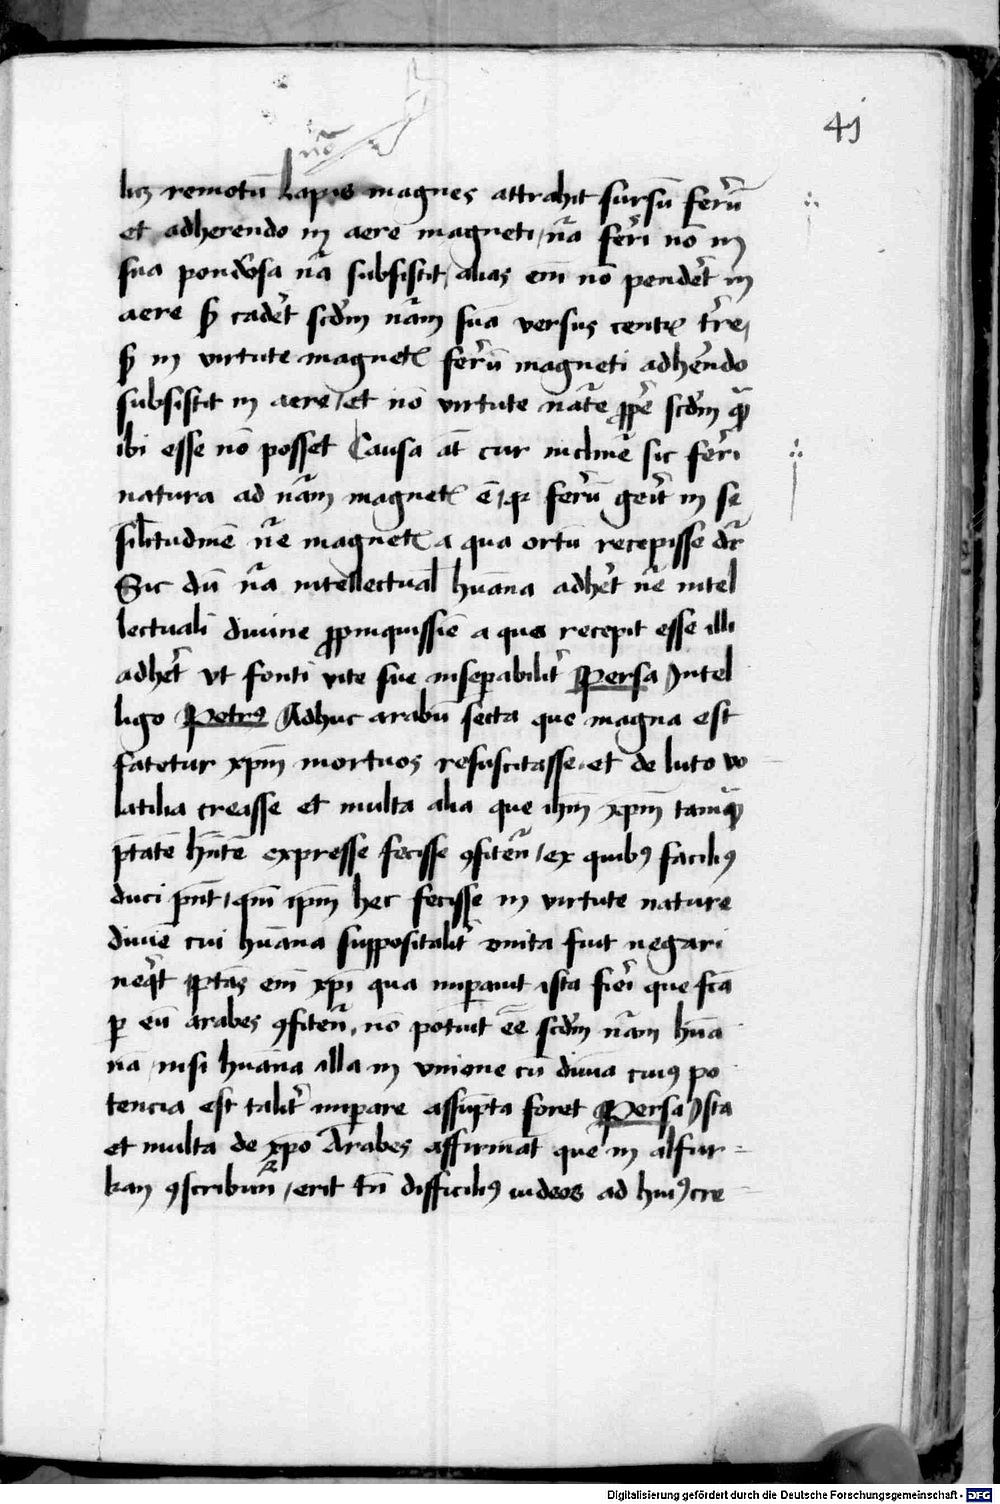 41
nō
licꝫ remotū Lapis magnes attrahit sursū ferꝛ̄ū
et adherendo in aere magneti / nā ferri nō in
sua pondosa nā subsistit / alias em̄ nō pender̄t in
aere sꝫ cader̄t scdm̄ nām suā versus centrꝫ terre /
sꝫ in virtute magnetꝭ ferrū magneti adherēdo
subsistit in aere / et nō virtute nāte ꝓpͥe scdm̄ quā
ibi esse nō posset Causa at̄ cur inclinē sic ferri
natura ad nām magnetꝭ ē / qꝛ ferrū gerit in se
silitudinē nē magnetꝭ a qua ortū recepisse dr̄
Sic dū nā intellectual̄ hūana adheret nē intel
lectuali diuine ꝓpinquissīe a qua recepit esse illi
adheret vt fonti vite sue insepabilit̄ Persa Intel
ligo Petrꝰ Adhuc arabū secta que magna est
fatetur xpm̄ mortuos resuscitasse et de luto vo
latilia creasse et multa alia que ihm̄ xpm̄ tamqͣ
ptātē hn̄tē expresse fecisse ꝯfitēn̄ / ex quibꝰ faciliꝰ
duci pn̄t / qm̄ ipm̄ hec fecisse in virtute nature
diuīe cui hūana suppositalit̄ vnita fuit negari
neqͥt ptās em̄ xpi qua imperauit ista fieri que fcā
ꝑ eū arabes ꝯfitēn̄ . nō potuit eē scdm̄ nām hūa
nā / nisi hūana illa in vnione cū diuīa cuiꝰ po
tencia est talit̄ imperare assūpta foret Persa Ista
et multa de xpo Arabes affirmāt que in alfur-
kan ꝯscribun̄ / erit tn̄ difficiliꝰ iudeos ad huiꝰ cre
Digitalisierung gefördert durch die Deutsche Forschungsgemeinschaft - DFG